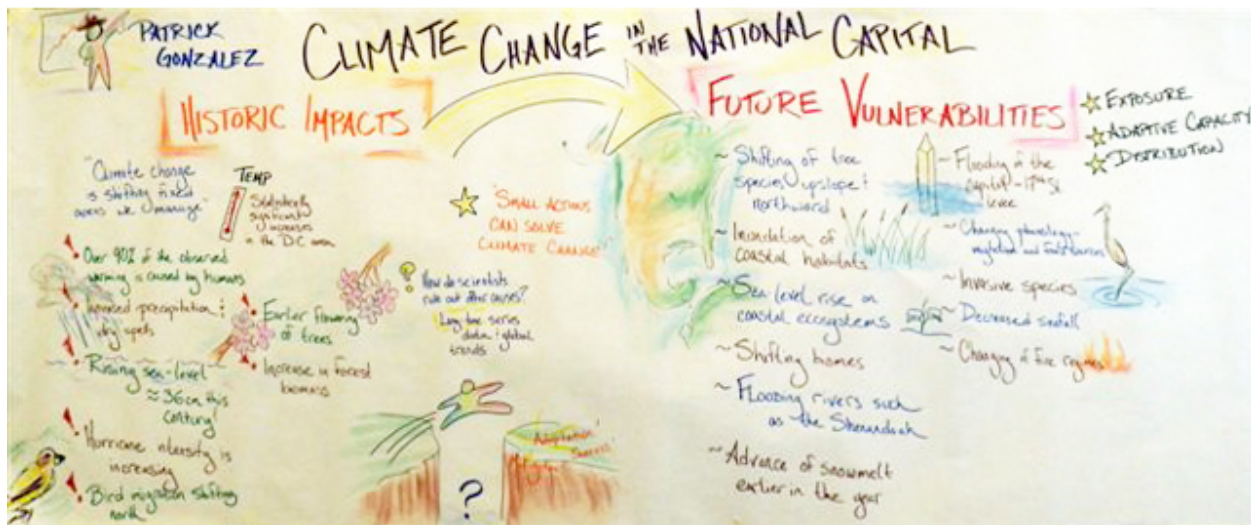 PATRICK
GONZALEZ
CLIMATE CHANGE IN THE NATIONAL CAPITAL
HISTORIC IMPACTS
"Climate change
is shifting fixed
areas we manage"
TEMP
Statistically
significant
increases
in the DC area
Over 90% of the observed
warming is caused by humans
Increased precipitation &
dry spells
Rising sea-level
≈ 36cm this
century!
Hurricane intensity is
increasing
Bird migration shifting
north
Earlier flowering
of trees
Increase in forest
biomass
"SMALL ACTIONS
CAN SOLVE
CLIMATE CHANGE"
?
How do scientists
rule out other causes?
Long time series
data & global
trends
?
Adaptation!
FUTURE VULNERABILITIES
EXPOSURE
ADAPTIVE CAPACITY
DISTRIBUTION
~ Shifting of tree
species upslope &
northward
~ Inundation of
coastal habitats
~ Sea-level rise on
coastal ecosystems
~ Shifting homes
~ Flooding rivers such
as the Shenandoah
~ Advance of snowmelt
earlier in the year
~ Flooding of the
capitol - 17th St.
levee
~ Changing phenology -
migration and
~ Invasive species
~ Decreased
~ Changing of fire regimes